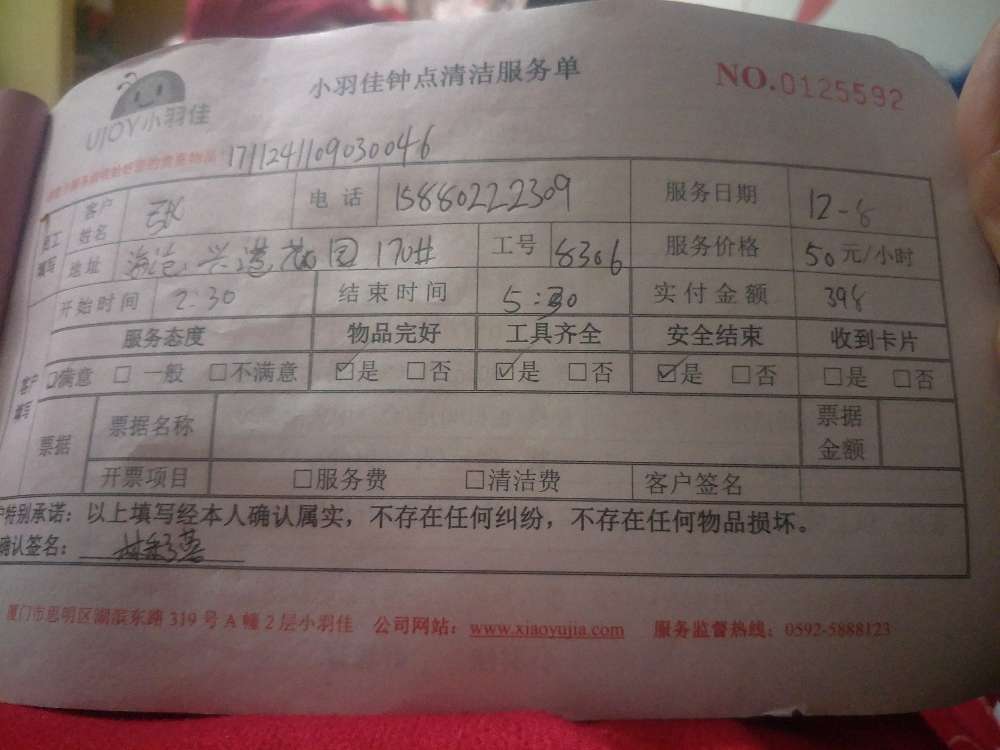 UJOY小羽佳
小羽佳钟点清洁服务单
NO.0125592
1711241109030046
员工填写
客户姓名
电话 15880222309 服务日期 12-8
地址 海沧 兴港花园 170# 工号 8306 服务价格 50元/小时
开始时间 2:30 结束时间 5:30 实付金额 398
服务态度 物品完好 工具齐全 安全结束 收到卡片
客户填写
☐满意 ☐一般 ☐不满意 ☑是 ☐否 ☑是 ☐否 ☑是 ☐否 ☐是 ☐否
票据 票据名称 票据金额
开票项目 ☐服务费 ☐清洁费 客户签名
户特别承诺：以上填写经本人确认属实，不存在任何纠纷，不存在任何物品损坏。
确认签名：
厦门市思明区湖滨东路 319 号 A 幢 2 层小羽佳 公司网站：www.xiaoyujia.com 服务监督热线：0592-5888123